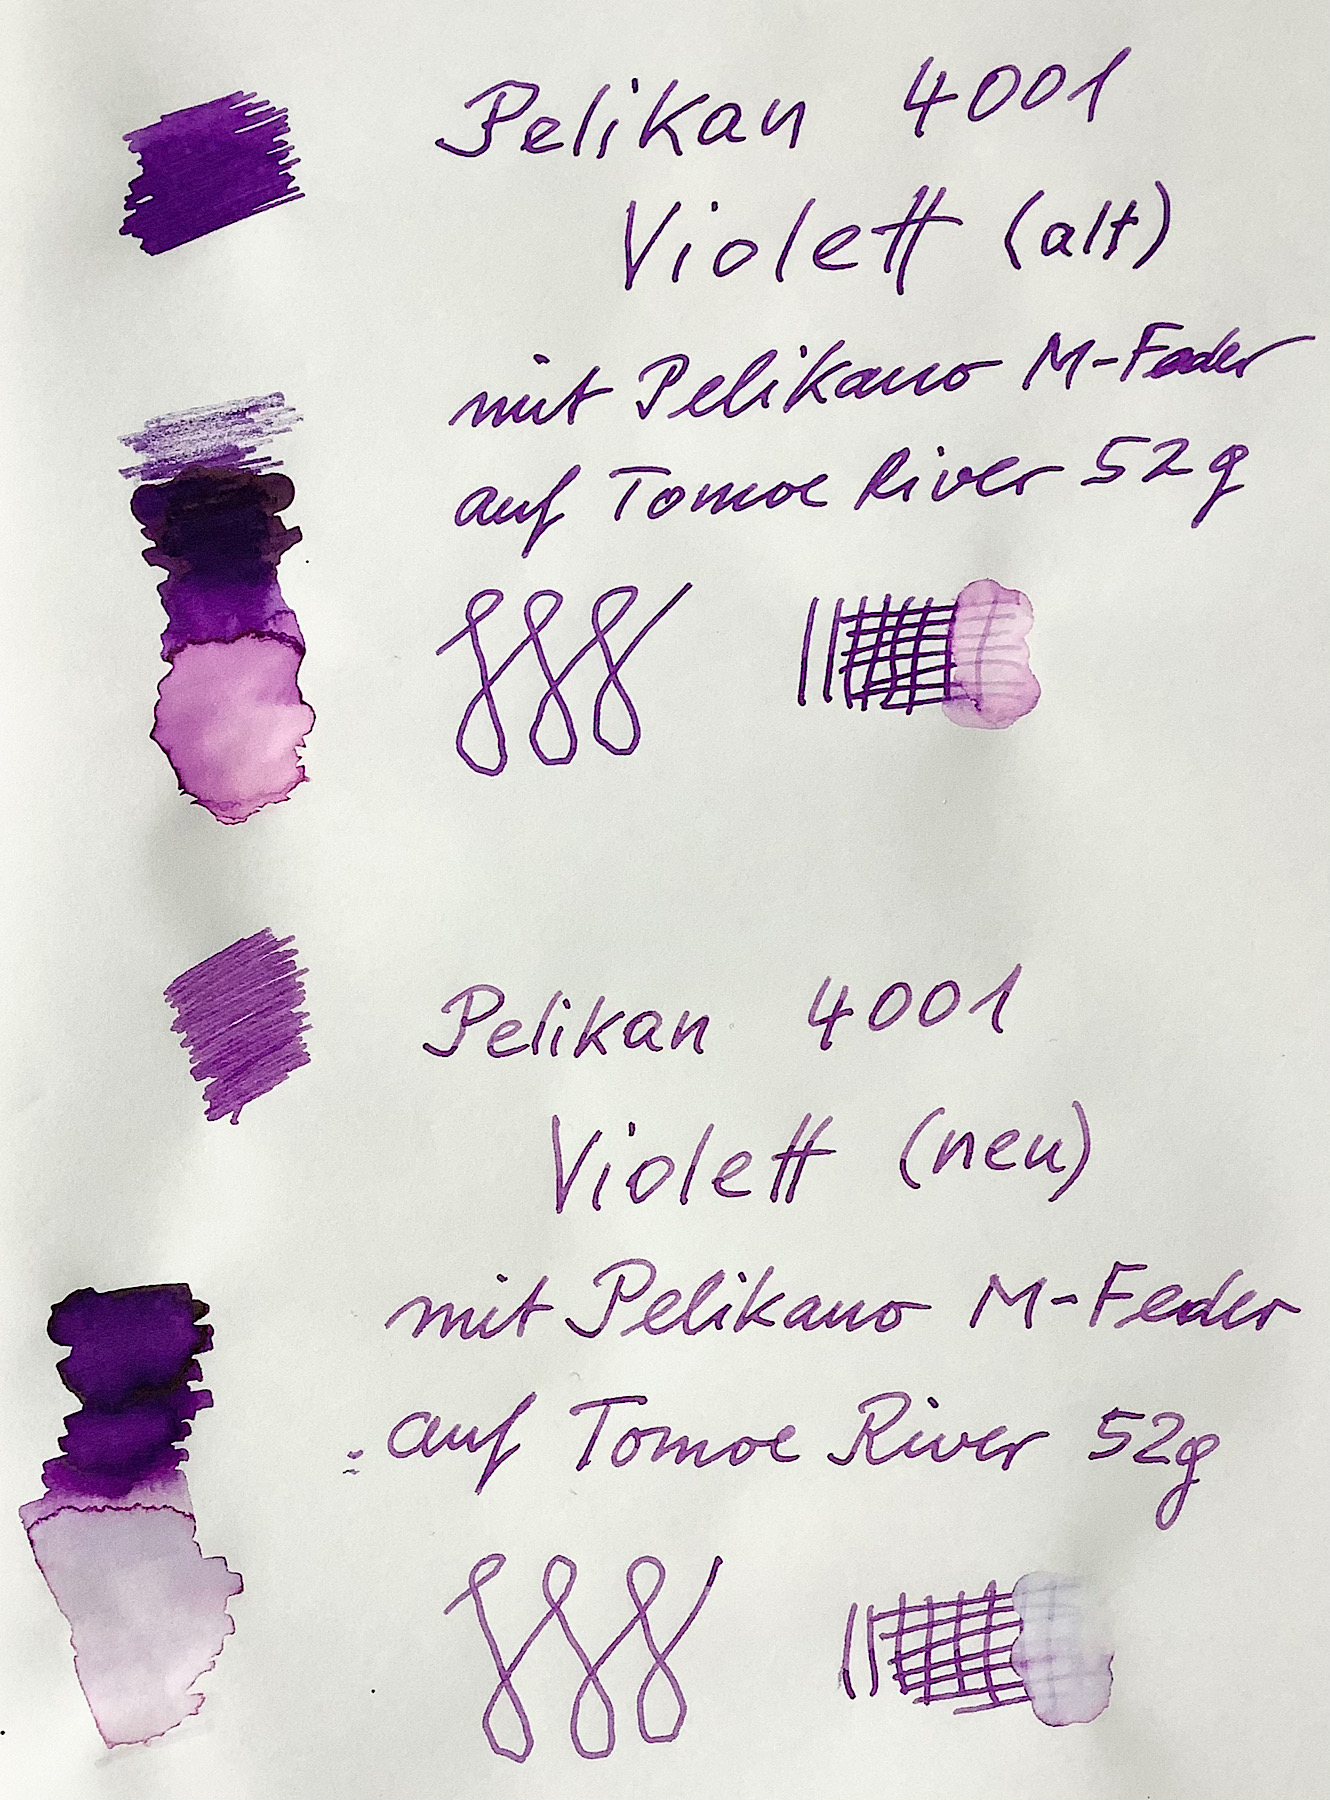 Pelikan 4001
Violett (alt)
mit Pelikano M-Feder
auf Tomoe River 52g
Pelikan 4001
Violett (neu)
mit Pelikano M-Feder
auf Tomoe River 52g